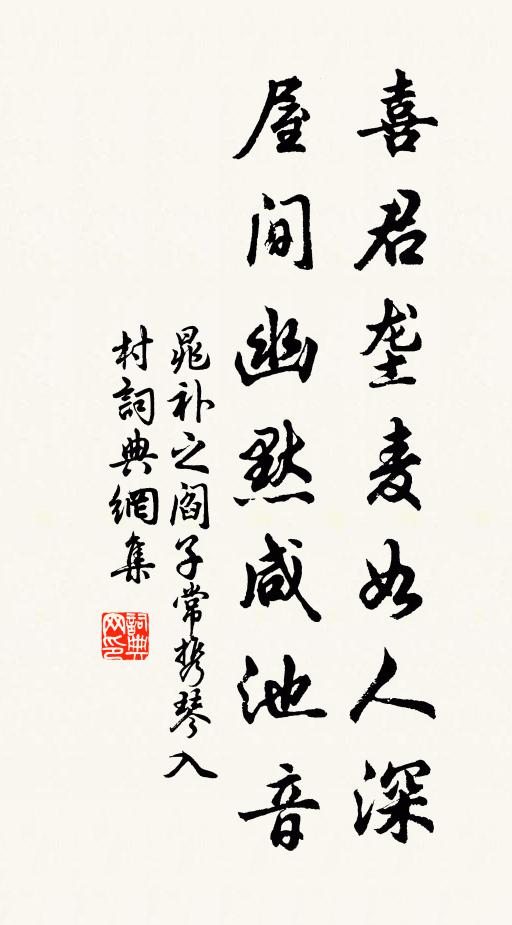 喜君垄麦如人深
屋间幽默咸池音
晁补之阎子常携琴入
村詞典網集
詞典
网印